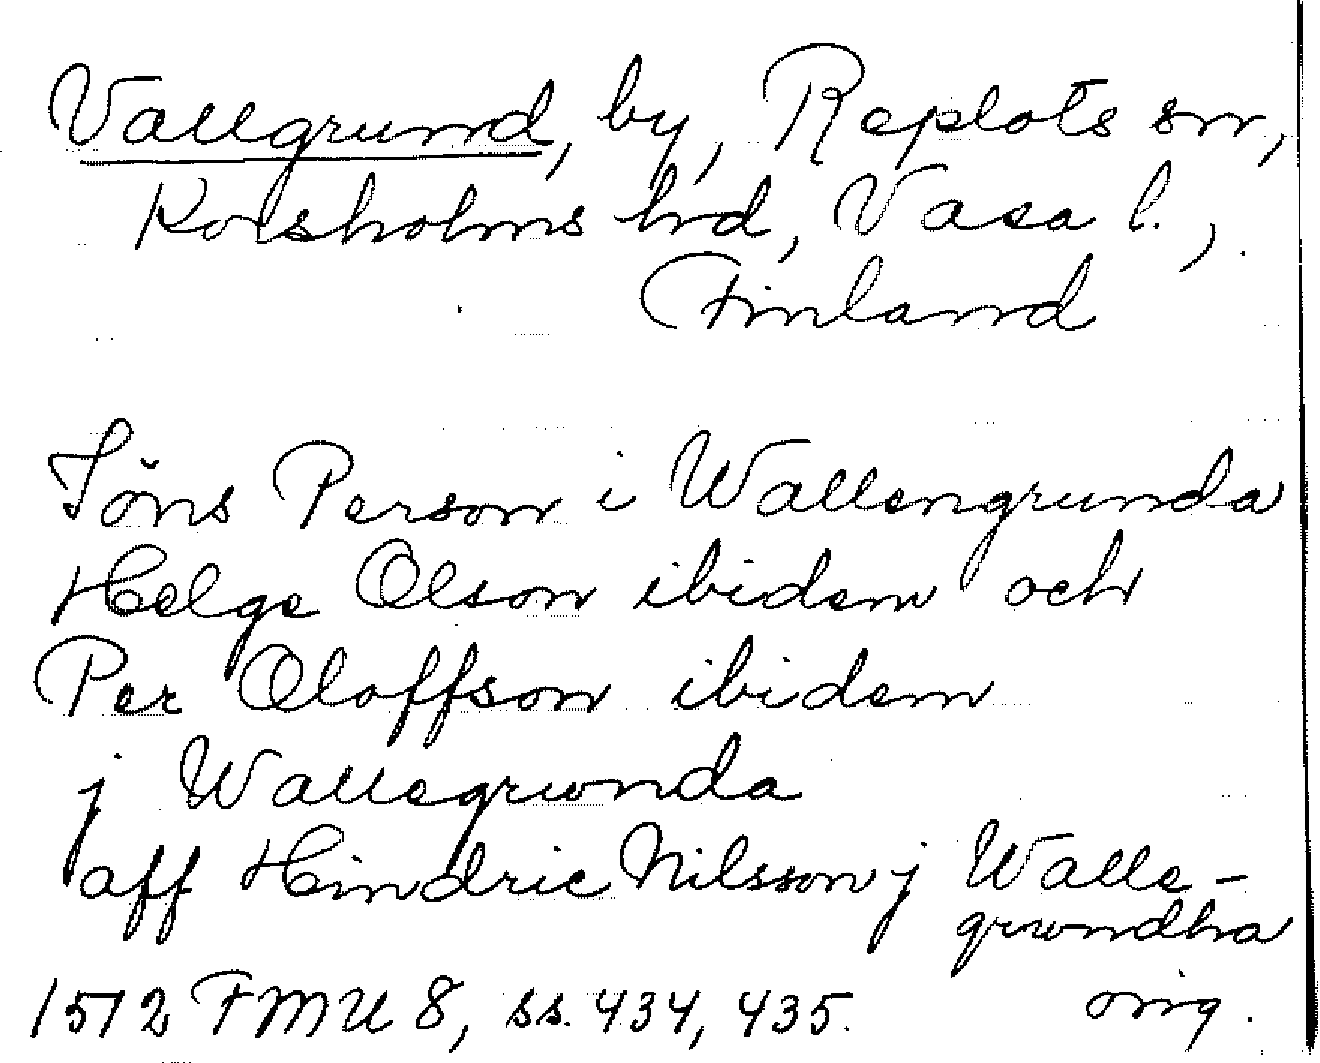 Vallgrund, by, Replots sn,
Korsholms hd, Vasa l.,
Finland
Jöns Person i Wallengrunda
Helge Olson ibidem och
Per Oloffson ibidem
j Wallegrwnda
aff Hindric Nilsson j Walle-
grwndha
1512 FMU 8, ss. 434, 435. orig.